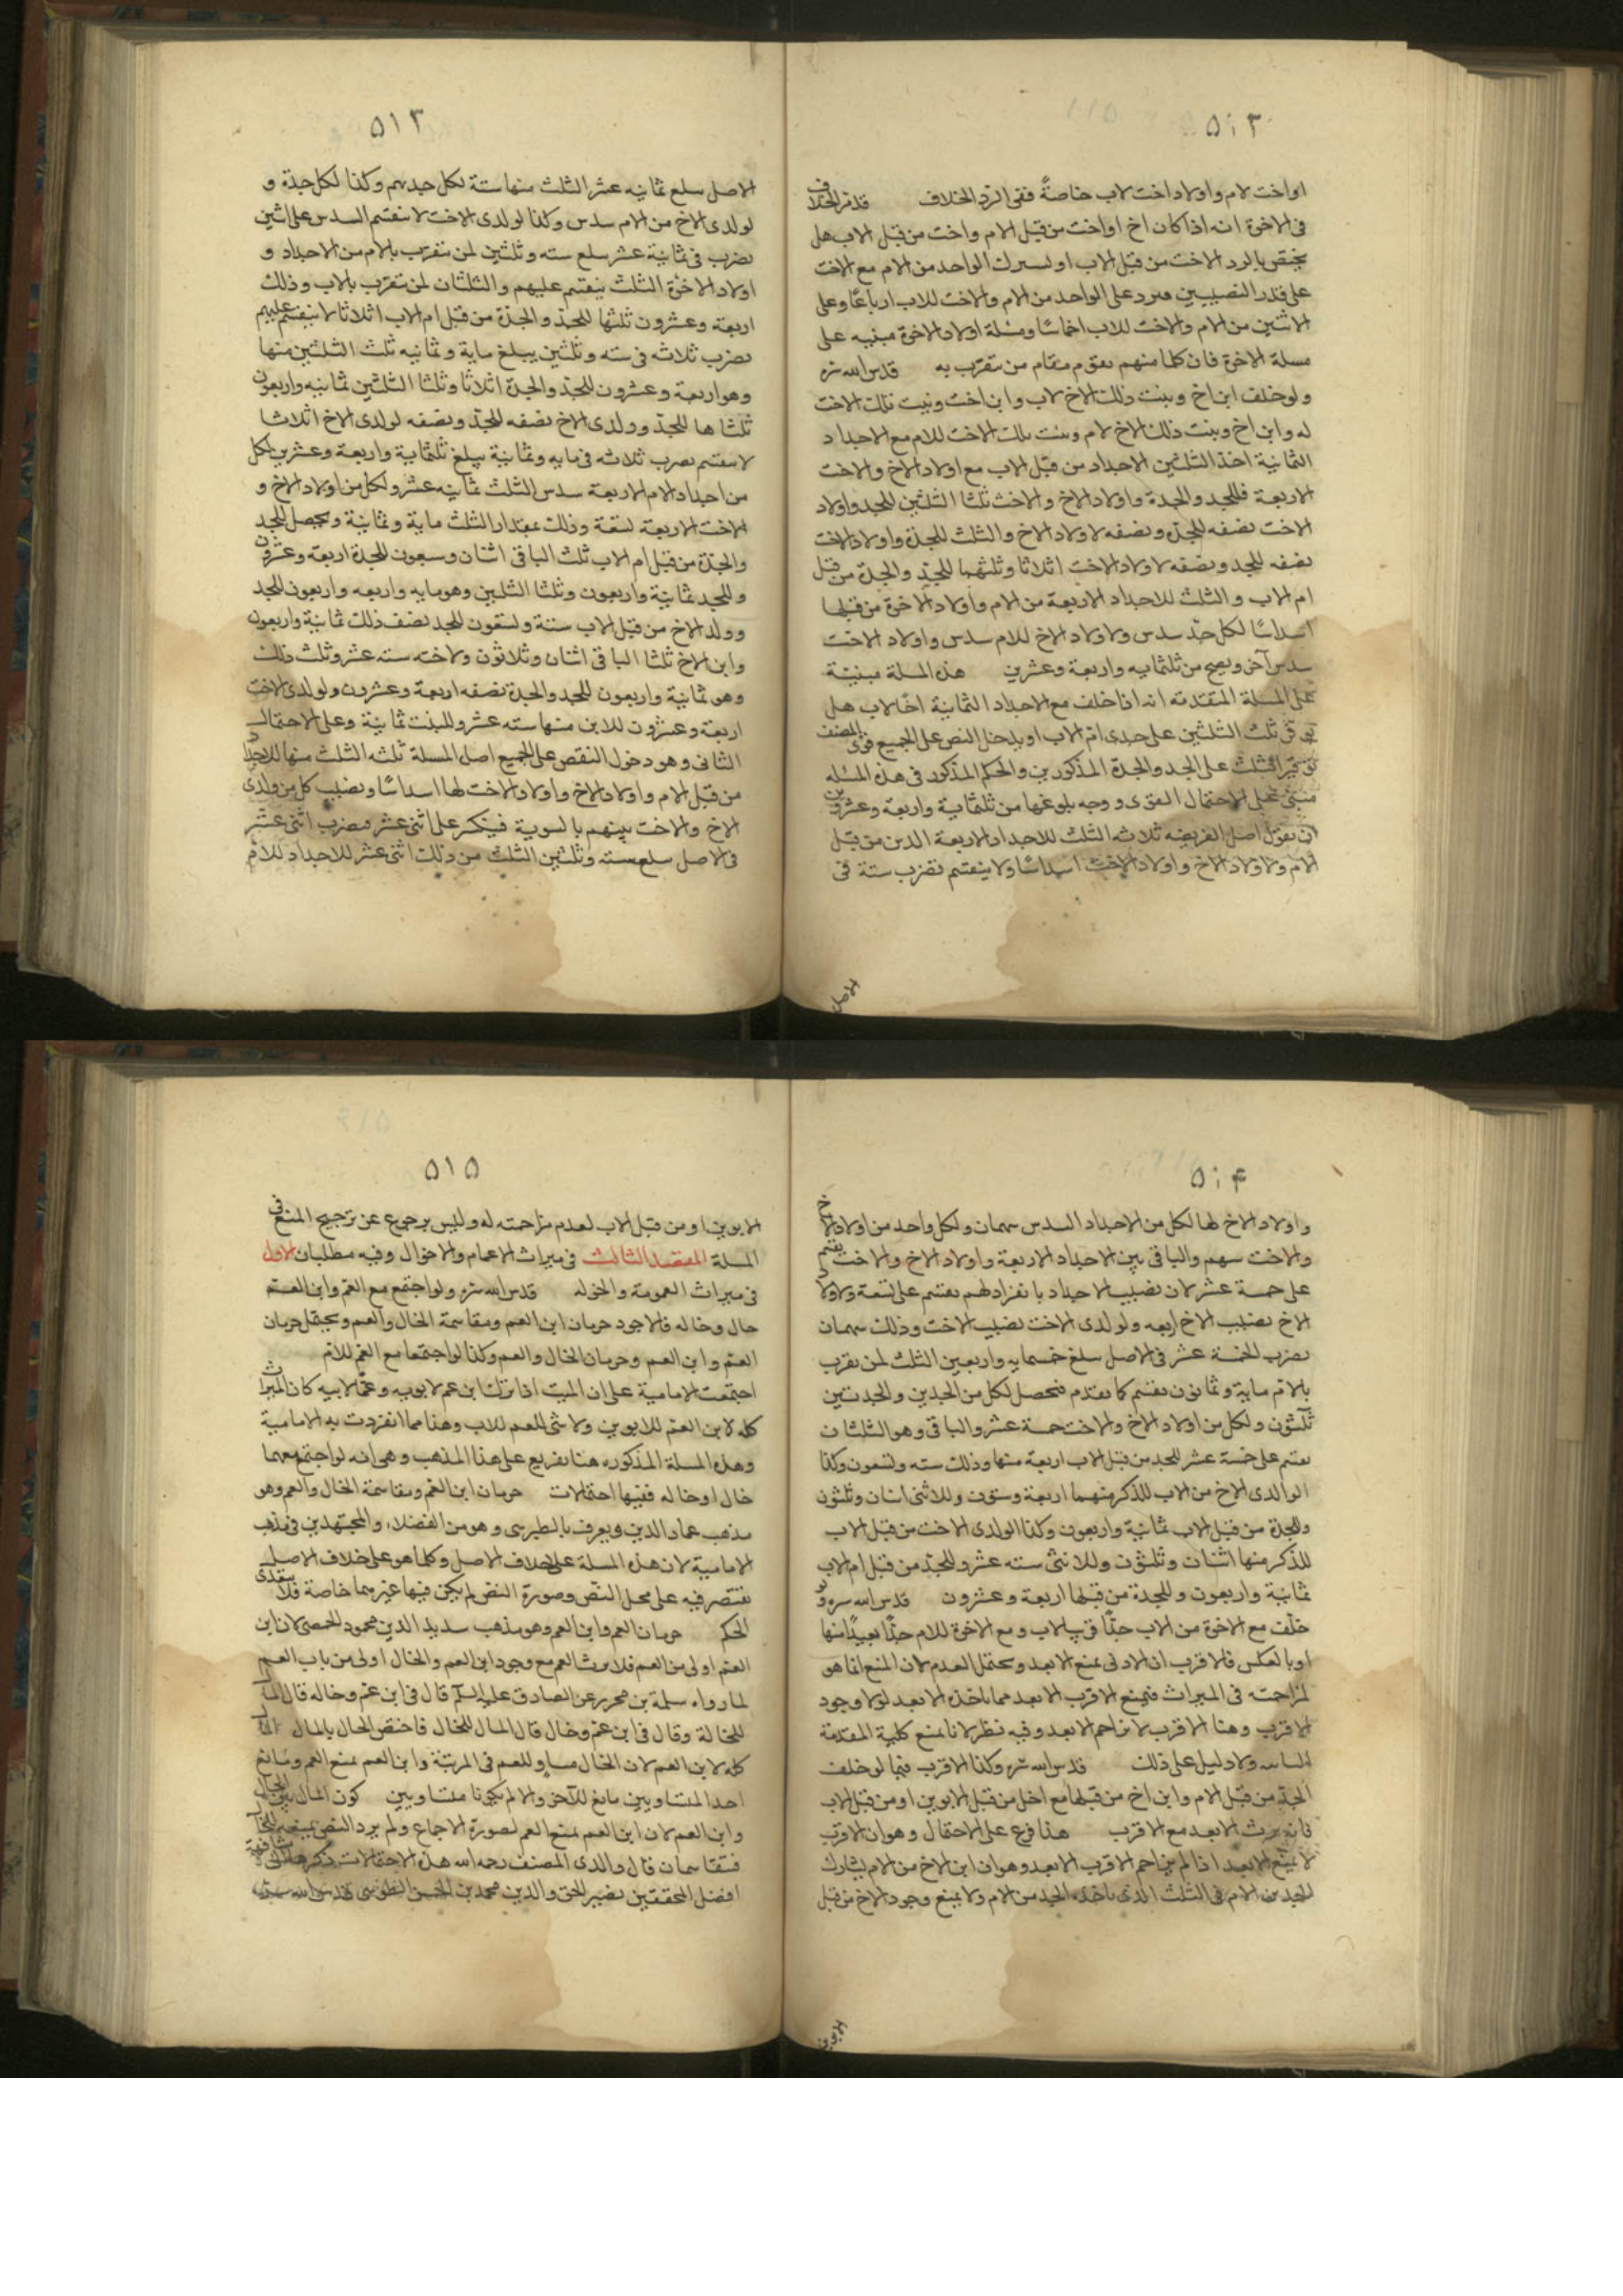 ٥١٢
او اخت لام واولاد اخت لاب خاصةً ففى الرّد الخلاف قد مرّ الخلاف
فى الاخوة انه اذا كان اخ او اخت من قبل الام واخت من قبل الاب هل
يختص بالرد الاخت من قبل الاب او يشترك الواحد من الام مع الاخت
على قدر النصيبين فيرد على الواحد من الام والاخت للاب ارباعًا وعلى
الاثنين من الام والاخت للاب اخماسًا ومسئلة اولاد الاخوة مبنيه على
مسلة الاخوة فان كلما منهم يقوم مقام من يتقرّب به قدس الله سره
ولو خلف ابن اخ وبنت ذلك الاخ لاب وابن اخت وبنت تلك الاخت
له وابن اخ وبنت ذلك الاخ لام وبنت تلك الاخت للام مع الاجداد
الثمانية اخذ الثلثين الاجداد من قبل الاب مع اولاد الاخ والاخت
الاربعة فللجد والجدة واولاد الاخ والاخت ثلثا الثلثين للجد واولاد
الاخت نصفه للجدّ ونصفه لاولاد الاخ والثلث للجدّة واولاد الاخت
نصفه للجد ونصفه لاولاد الاخت اثلاثا وثلثهما للجدّ والجدّة من قبل
ام الاب والثلث للاجداد الاربعة من الام واولاد الاخوة من قبلها
اسداسًا لكل جدّ سدس ولاولاد الاخ للام سدس واولاد الاخت
سدس آخر ويصح من ثلثمايه واربعة وعشرين هذه المسلة مبنيّة
على المسلة المتقدمه انه اذا خلف مع الاجداد الثمانية اخًا لاب هل
ثلث الثلثين على جدى امّ الاب او يدخل النقص على الجميع المصنف
الثلث على الجد والجدّة المذكورين والحكم المذكور فى هذه المسئله
على الاحتمال القوى ووجه بلوغها من ثلثماية واربعة وعشرين
ان نقول اصل الفريضه ثلاثه الثلث للاجداد الاربعة الذين من قبل
الام ولاولاد الاخ واولاد الاخت اسداسًا ولا ينقسم نضرب ستة فى
الاصل
٥١٣
الاصل يبلغ ثمانيه عشر الثلث منها ستة لكل جد سهم وكذا لكل جدّة و
لولدى الاخ من الام سدس وكذا لولدى الاخت لا ينقسم السدس على اثنين
نضرب فى ثمانية عشر يبلغ سته وثلثين لمن يتقرّب بالام من الاجداد و
اولاد الاخوة الثلث ينقسم عليهم والثلثان لمن يتقرّب بالاب وذلك
اربعة وعشرون ثلثها للجدّ والجدّة من قبل ام الاب اثلاثا لا ينقسم عليهم
نضرب ثلاثه فى سته وثلثين يبلغ ماية وثمانيه ثلث الثلثين منها
وهو اربعة وعشرون للجدّ والجدّة اثلاثًا وثلثا الثلثين ثمانيه واربعون
ثلثاها للجدّ وولدى الاخ نصفه للجدّ ونصفه لولدى الاخ اثلاثا
لا ينقسم نضرب ثلاثه فى مايه وثمانية يبلغ ثلثماية واربعة وعشرين لكل
من اجداد الام الاربعة سدس الثلث ثمانيه عشر ولكل من اولاد الاخ و
الاخت الاربعة تسعة وذلك مقدار الثلث ماية وثمانية ويحصل للجد
والجدّة من قبل ام الاب ثلث الباقى اثنان وسبعون للجدة اربعة وعشرون
وللجد ثمانية واربعون وثلثا الثلثين وهو مايه واربعه واربعون للجد
وولد الاخ من قبل الاب ستة وتسعون للجد نصف ذلك ثمانية واربعون
وابن الاخ ثلثا الباقى اثنان وثلاثون ولاخته سته عشر وثلث ذلك
وهو ثمانية واربعون للجد والجدة نصفه اربعة وعشرون ولولدى الاخت
اربعة وعشرون للابن منها سته عشر وللبنت ثمانية وعلى الاحتمال
الثانى وهو دخول النقص على الجميع اصل المسلة ثلثه الثلث منها للاجداد
من قبل الام واولاد الاخ واولاد الاخت لها اسداسًا ونصيب كل من ولدى
الاخ والاخت بينهم بالسوية فينكر على اثنى عشر فنضرب اثنى عشر
فى الاصل يبلغ سته وثلثين الثلث من ذلك اثنى عشر للاجداد للام
٥١۴
واولاد الاخ لها لكل من الاجداد السدس سهمان ولكل واحد من اولاد الاخ
والاخت سهم والباقى بين الاجداد الاربعة واولاد الاخ والاخت يقسم
على خمسة عشر لان نصيب الاجداد بانفرادهم يقسم على تسعة ولاولاد
الاخ نصيب الاخ اربعه ولولدى الاخت نصيب الاخت وذلك سهمان
نضرب الخمسة عشر فى الاصل يبلغ خمسمايه واربعين الثلث لمن يقرب
بالام ماية وثمانون يقسم كما تقدم فيحصل لكل من الجدين والجدتين
ثلثون ولكل من اولاد الاخ والاخت خمسة عشر والباقى وهو الثلثان
يقسم على خمسة عشر للجد من قبل الاب اربعة منها وذلك سته وتسعون وكذا
الوالدى الاخ من الاب للذكر منهما اربعة وستون وللانثى اثنان وثلثون
وللجدّة من قبل الاب ثمانية واربعون وكذا الولدى الاخت من قبل الاب
للذكر منها اثنان وثلثون وللانثى سته عشر وللجدّ من قبل ام الاب
ثمانية واربعون وللجدة من قبلها اربعة وعشرون قدس الله سره ولو
خلّف مع الاخوة من الاب جدًّا قريب لاب ومع الاخوة للام جدًّا بعيدًا منها
او بالعكس فالاقرب ان الادنى يمنع الابعد ويحتمل العدم لان المنع انما هو
لمزاحمته فى الميراث فيمنع الاقرب الابعد مما ياخذه الابعد لولا وجود
الاقرب وهنا الاقرب لا يزاحم الابعد وفيه نظر لانا نمنع كلية المقدّمة
الثانيه ولا دليل على ذلك قدس الله سره وكذا الاقرب فيما لو خلف
الجدّ من قبل الام وابن اخ من قبلها مع اخ من قبل الابوين او من قبل الاب
فانه يرث الابعد مع الاقرب هذا فرع على الاحتمال وهو ان الاقرب
لا يمنع الابعد اذا لم يزاحم الاقرب الابعد وهو ان ابن الاخ من الام يشارك
الجد من الام فى الثلث الذى ياخذه الجد من الام ولا يمنع وجود الاخ من قبل
الابوين
٥١٥
الابوين او من قبل الاب لعدم مزاحمته له وليس برجوع عن ترجيح المنع فى
المسلة المقصد الثالث فى ميراث الاعمام والاخوال وفيه مطلبان الاول
فى ميراث العمومة والخولة قدس الله سره ولو اجتمع مع العمّ وابن العم
خال وخاله فالاجود حرمان ابن العم ومقاسمة الخال والعم ويحتمل حرمان
العمّ وابن العم وحرمان الخال والعم وكذا لو اجتمعا مع العمّ للام
اجتمعت الامامية على ان الميت اذا ترك ابن عم لابويه وعمّا لابيه كان الميراث
كله لابن العمّ للابوين ولا شئ للعم للاب وهذا مما انفردت به الامامية
وهذه المسلة المذكوره هنا تفريع على هذا المذهب وهى انه لو اجتمع معهما
خال او خاله ففيها احتمالات حرمان ابن العم ومقاسمة الخال والعم وهو
مذهب عماد الدين ويعرف بالطبرسى وهو من الفضلاء والمجتهدين فى مذهب
الامامية لان هذه المسلة على خلاف الاصل وكلما هو على خلاف الاصل
يقتصر فيه على محل النصّ وصورة النص لم يكن فيها غيرهما خاصة فلا يتعدى
الحكم حرمان العم وابن العم وهو مذهب سديد الدين محمود الحمصى لان ابن
العم اولى من العم فلا يرث العم مع وجود ابن العم والخال اولى من باب العم
لما رواه سلمة بن محرز عن الصادق عليه السلم قال فى ابن عم وخاله قال المال
للخالة وقال فى ابن عم وخال قال المال للخال فاختص الخال بالمال
كله لابن العم لان الخال مساو للعم فى المرتبة وابن العم يمنع العم ومانع
احد المتساويين مانع للآخر والا لم يكونا متساويين كون المال بين الخال
وابن العم لان ابن العم يمنع العم لصورة الاجماع ولم يرد النص بمنعه للخال
فيتقاسمان قال والدى المصنف رحمه الله هذه الاحتمالات ذكرها
افضل المحققين نصير الحق والدين محمد بن الحسن الطوسى قدس الله سره